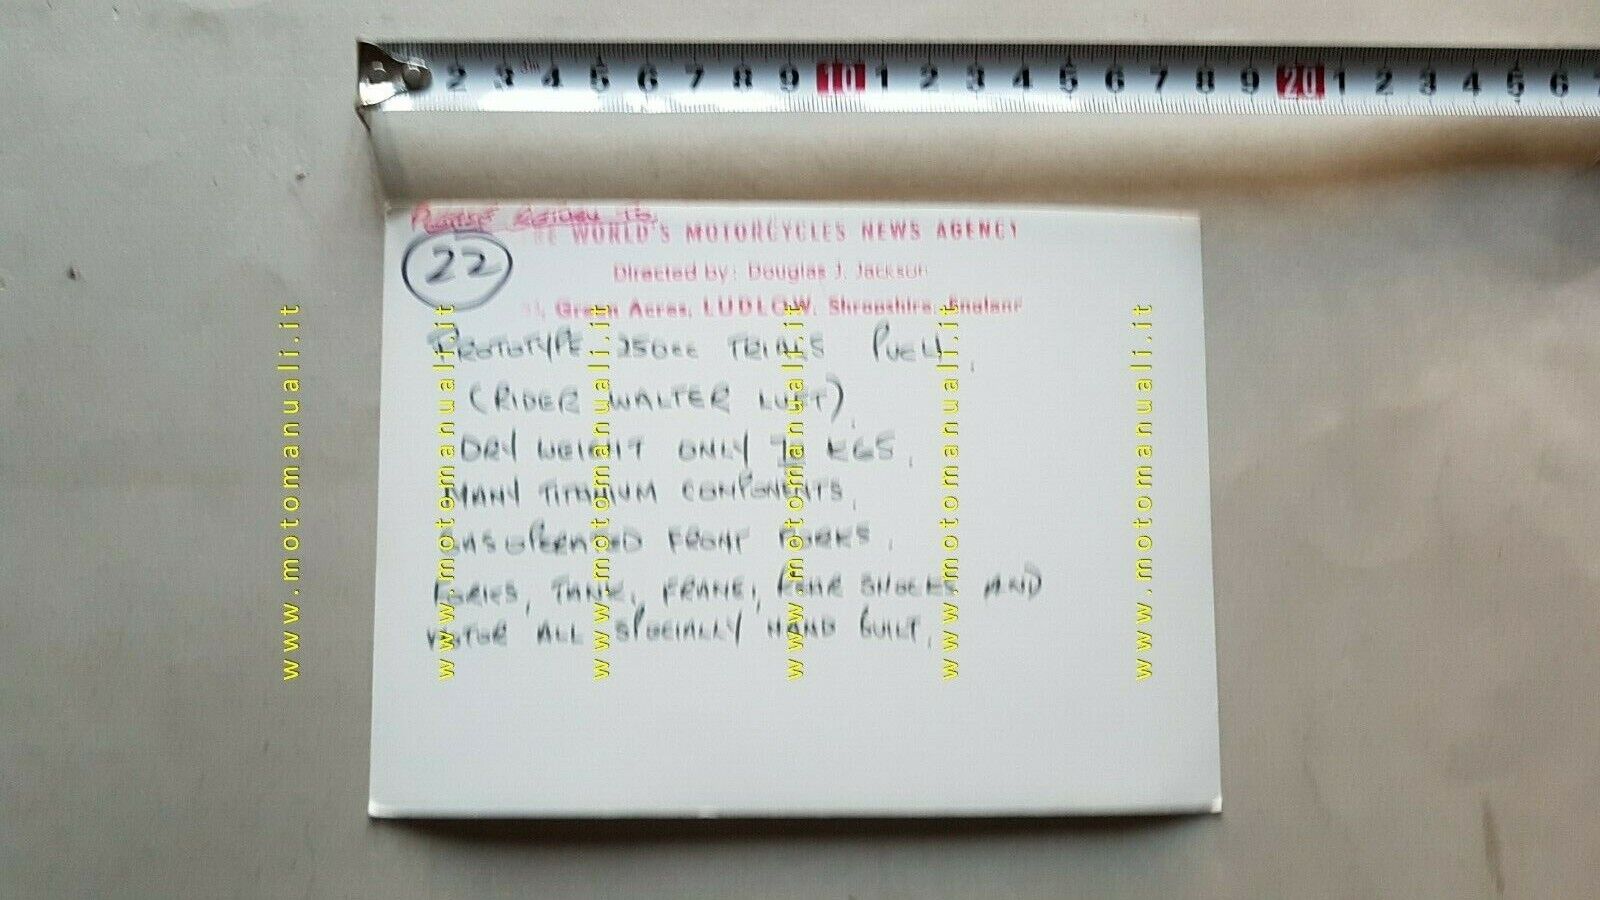 2 3 4 5 6 7 8 9 10 1 2 3 4 5 6 7 8 9 20 1 2 3 4 5 6 7
PLEASE RETURN TO
22
WORLD'S MOTORCYCLES NEWS AGENCY
Directed by: Douglas J. Jackson
Green Acres, LUDLOW, Shropshire, England
PROTOTYPE 250cc TRIALS PUCH.
(RIDER WALTER LUFT).
DRY WEIGHT ONLY KGS.
MANY TITANIUM COMPONENTS.
GAS OPERATED FRONT FORKS.
FORKS, TANK, FRAME, REAR SHOCKS AND
MOTOR ALL SPECIALLY HAND BUILT.
www.motomanuali.it
www.motomanuali.it
www.motomanuali.it
www.motomanuali.it
www.motomanuali.it
www.motomanuali.it